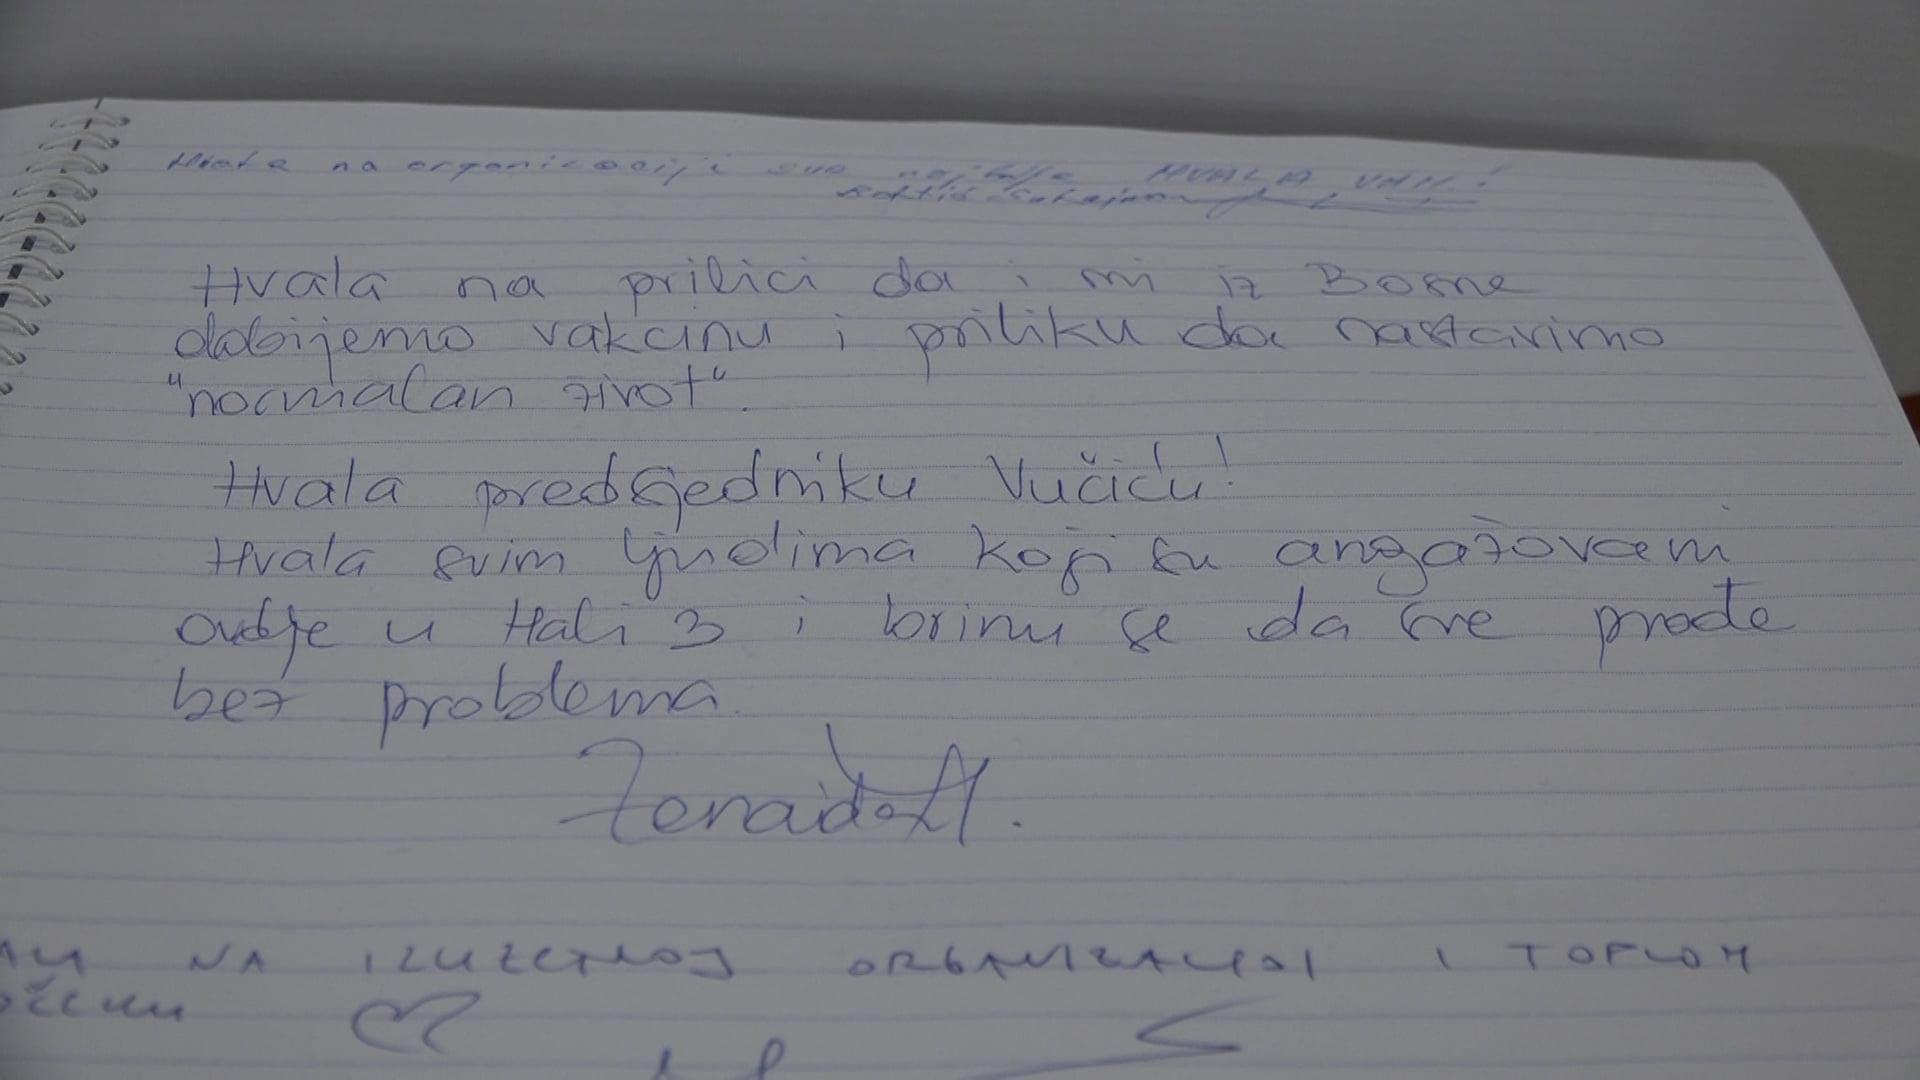 Hvala na organizaciji sve najbolje HVALA VAM!
Hvala na prilici da i mi iz Bosne
dobijemo vakcinu i priliku da nastavimo
"normalan život".
Hvala predsjedniku Vučiću!
Hvala svim ljudima koji su angažovani
ovdje u Hali 3 i brinu se da sve prođe
bez problema.
Zenaida A.
NA IZUZETNOJ ORGANIZACIJI I TOPLOM